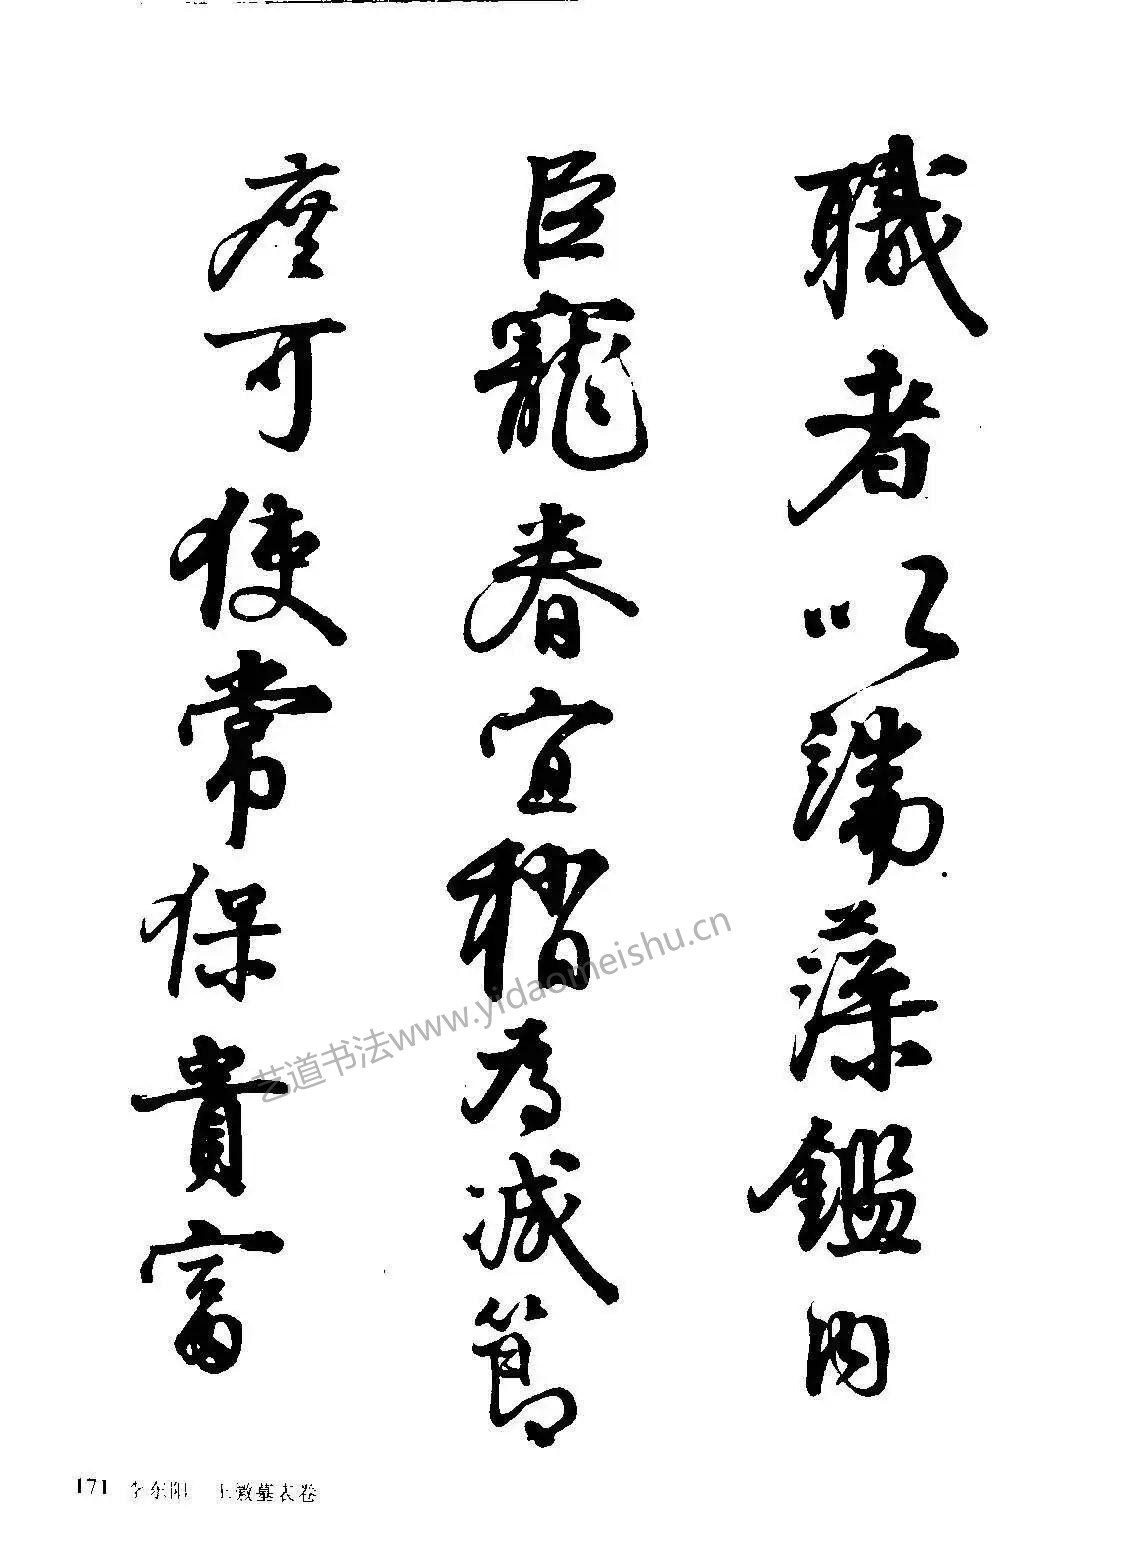 職者以端藻鑑内
臣寵眷宜稍為減節
庶可使常保貴富
艺道书法www.yidaomeishu.cn
171 李东阳 王徽墓表卷